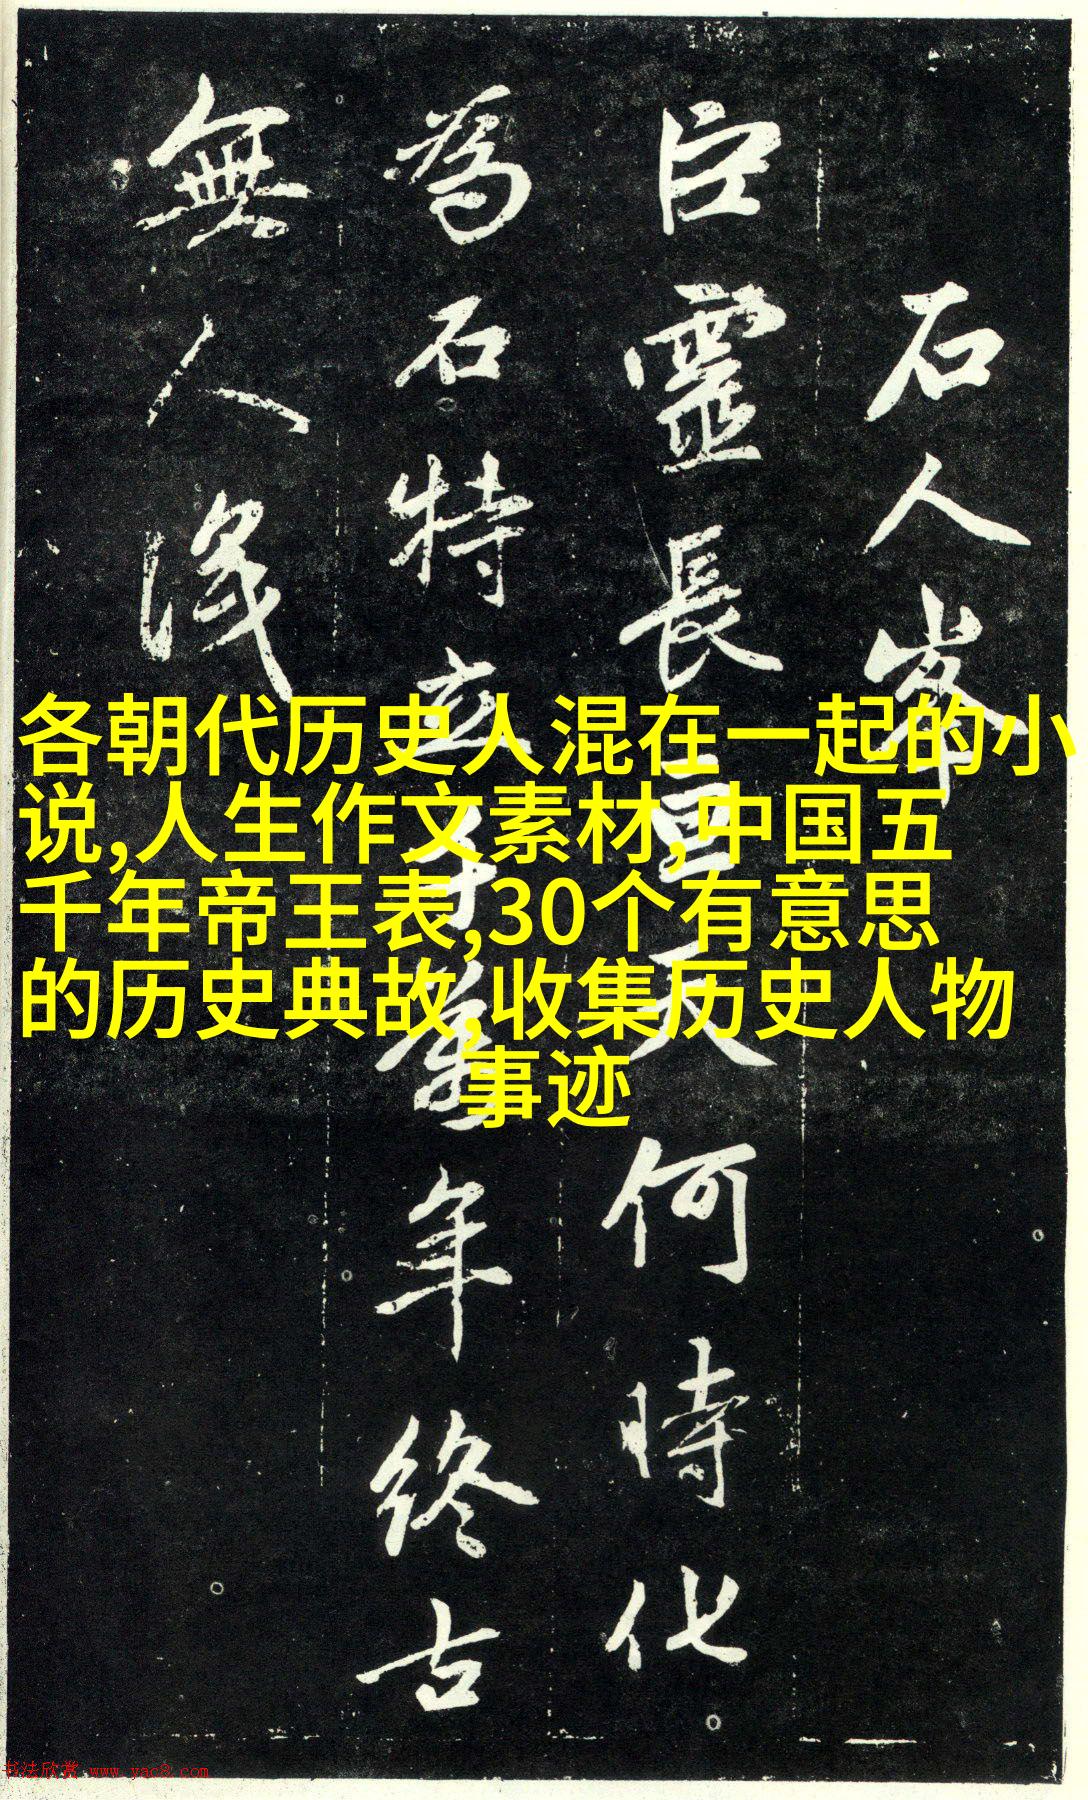 石人峯
巨靈長亘天何時化
為石特立千萬年終古
無人識
各朝代历史人混在一起的小
说,人生作文素材,中国五
千年帝王表,30个有意思
的历史典故,收集历史人物
事迹
书法欣赏 www.yac8.com